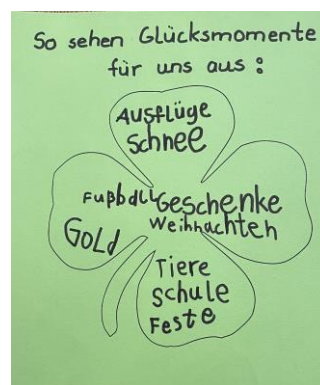 So sehen Glücksmomente
für uns aus:
Ausflüge
Schnee
Fußball
Gold
Geschenke
Weihnachten
Tiere
Schule
Feste